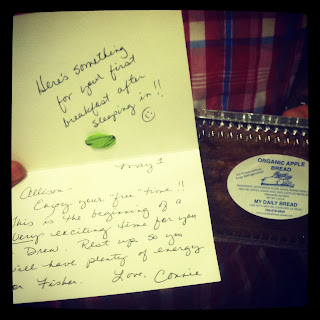 Here's something
for your first
breakfast after
sleeping in!!
May 1
Allison-
Enjoy your "free" time!!
This is the beginning of a
very exciting time for you
Drew. Rest up so you
'll have plenty of energy
Fisher. Love, Connie
ORGANIC APPLE
BREAD
MY DAILY BREAD